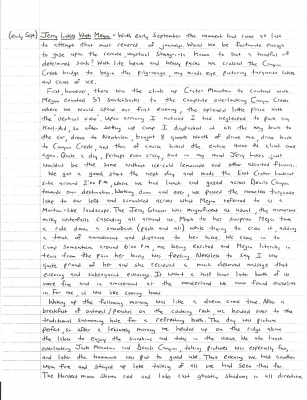 (early Sept) Jerry Lakes With Megan - With early September the moment had come at last
to attempt that most revered of journeys. Would we be fortunate enough
to gaze upon the remote, mystical Shangri-la known to but a handful of
determined souls? With lite hearts and heavy packs we crossed the Canyon
Creek bridge to begin the pilgrimage, my minds eye picturing turquoise lakes
and caves of ice.
First, however, there was the climb up Crater Mountain to contend with.
Megan counted 57 switchbacks to the campsite overlooking Canyon Creek
where we would spend our first evening, the splendid little place with
the "vertical view". Upon arriving I noticed I had neglected to pack any
Kool-Aid, so after setting up camp I dispatched it all the way back to
the car, drove to Newhalem, bought 8 quarts worth of drink mix, drove back
to Canyon Creek, and then of course hiked the entire 4000 ft climb once
again. Quite a day, perhaps even crazy, but in my mind Jerry Lakes just
wouldn't be the same without iced lemonade and other assorted flavors.
We got a good start the next day and made the East Crater lookout
site around 2:00 P.M. where we had lunch and gazed across Devils Canyon
towards our destination. Working down and over we passed the nameless turquoise
lake to our left and scrambled across what Megan referred to as a
Martian-like landscape. The Jerry Glacier was magnificent as usual, the numerous
milky waterfalls cascading all around us. Much to her surprise Megan took
a ride down a snowbank (pack and all) while trying to cross it, adding
a touch of amusement and distance to her hike. We came in to
Camp Somewhere around 6:00 P.M. me being excited and Megan literally in
tears from the pain her body was feeling. Needless to say I was
quite proud of her and she received a much deserved massage that
evening and subsequent evenings. It wasn't a half hour later both of us
were fine and in amazement at the wonderland we now found ourselves
in. For me, it was like coming home.
Waking up the following morning was like a dream come true. After a
breakfast of oatmeal/peaches on the cooking rock we headed over to the
traditional swimming hole for a refreshing bath. The day was picture
perfect so after a leisurely morning we headed up on the ridge above
the lakes to enjoy the sunshine and take in the views. We ate lunch
overlooking Jack Mountain and Devils Canyon, taking pictures was especially fun,
and later the hammock was put to good use. That evening we had another
warm fire and stayed up late talking of all we had seen thus far.
The Harvest Moon shone red and later cast ghostly shadows in all directions